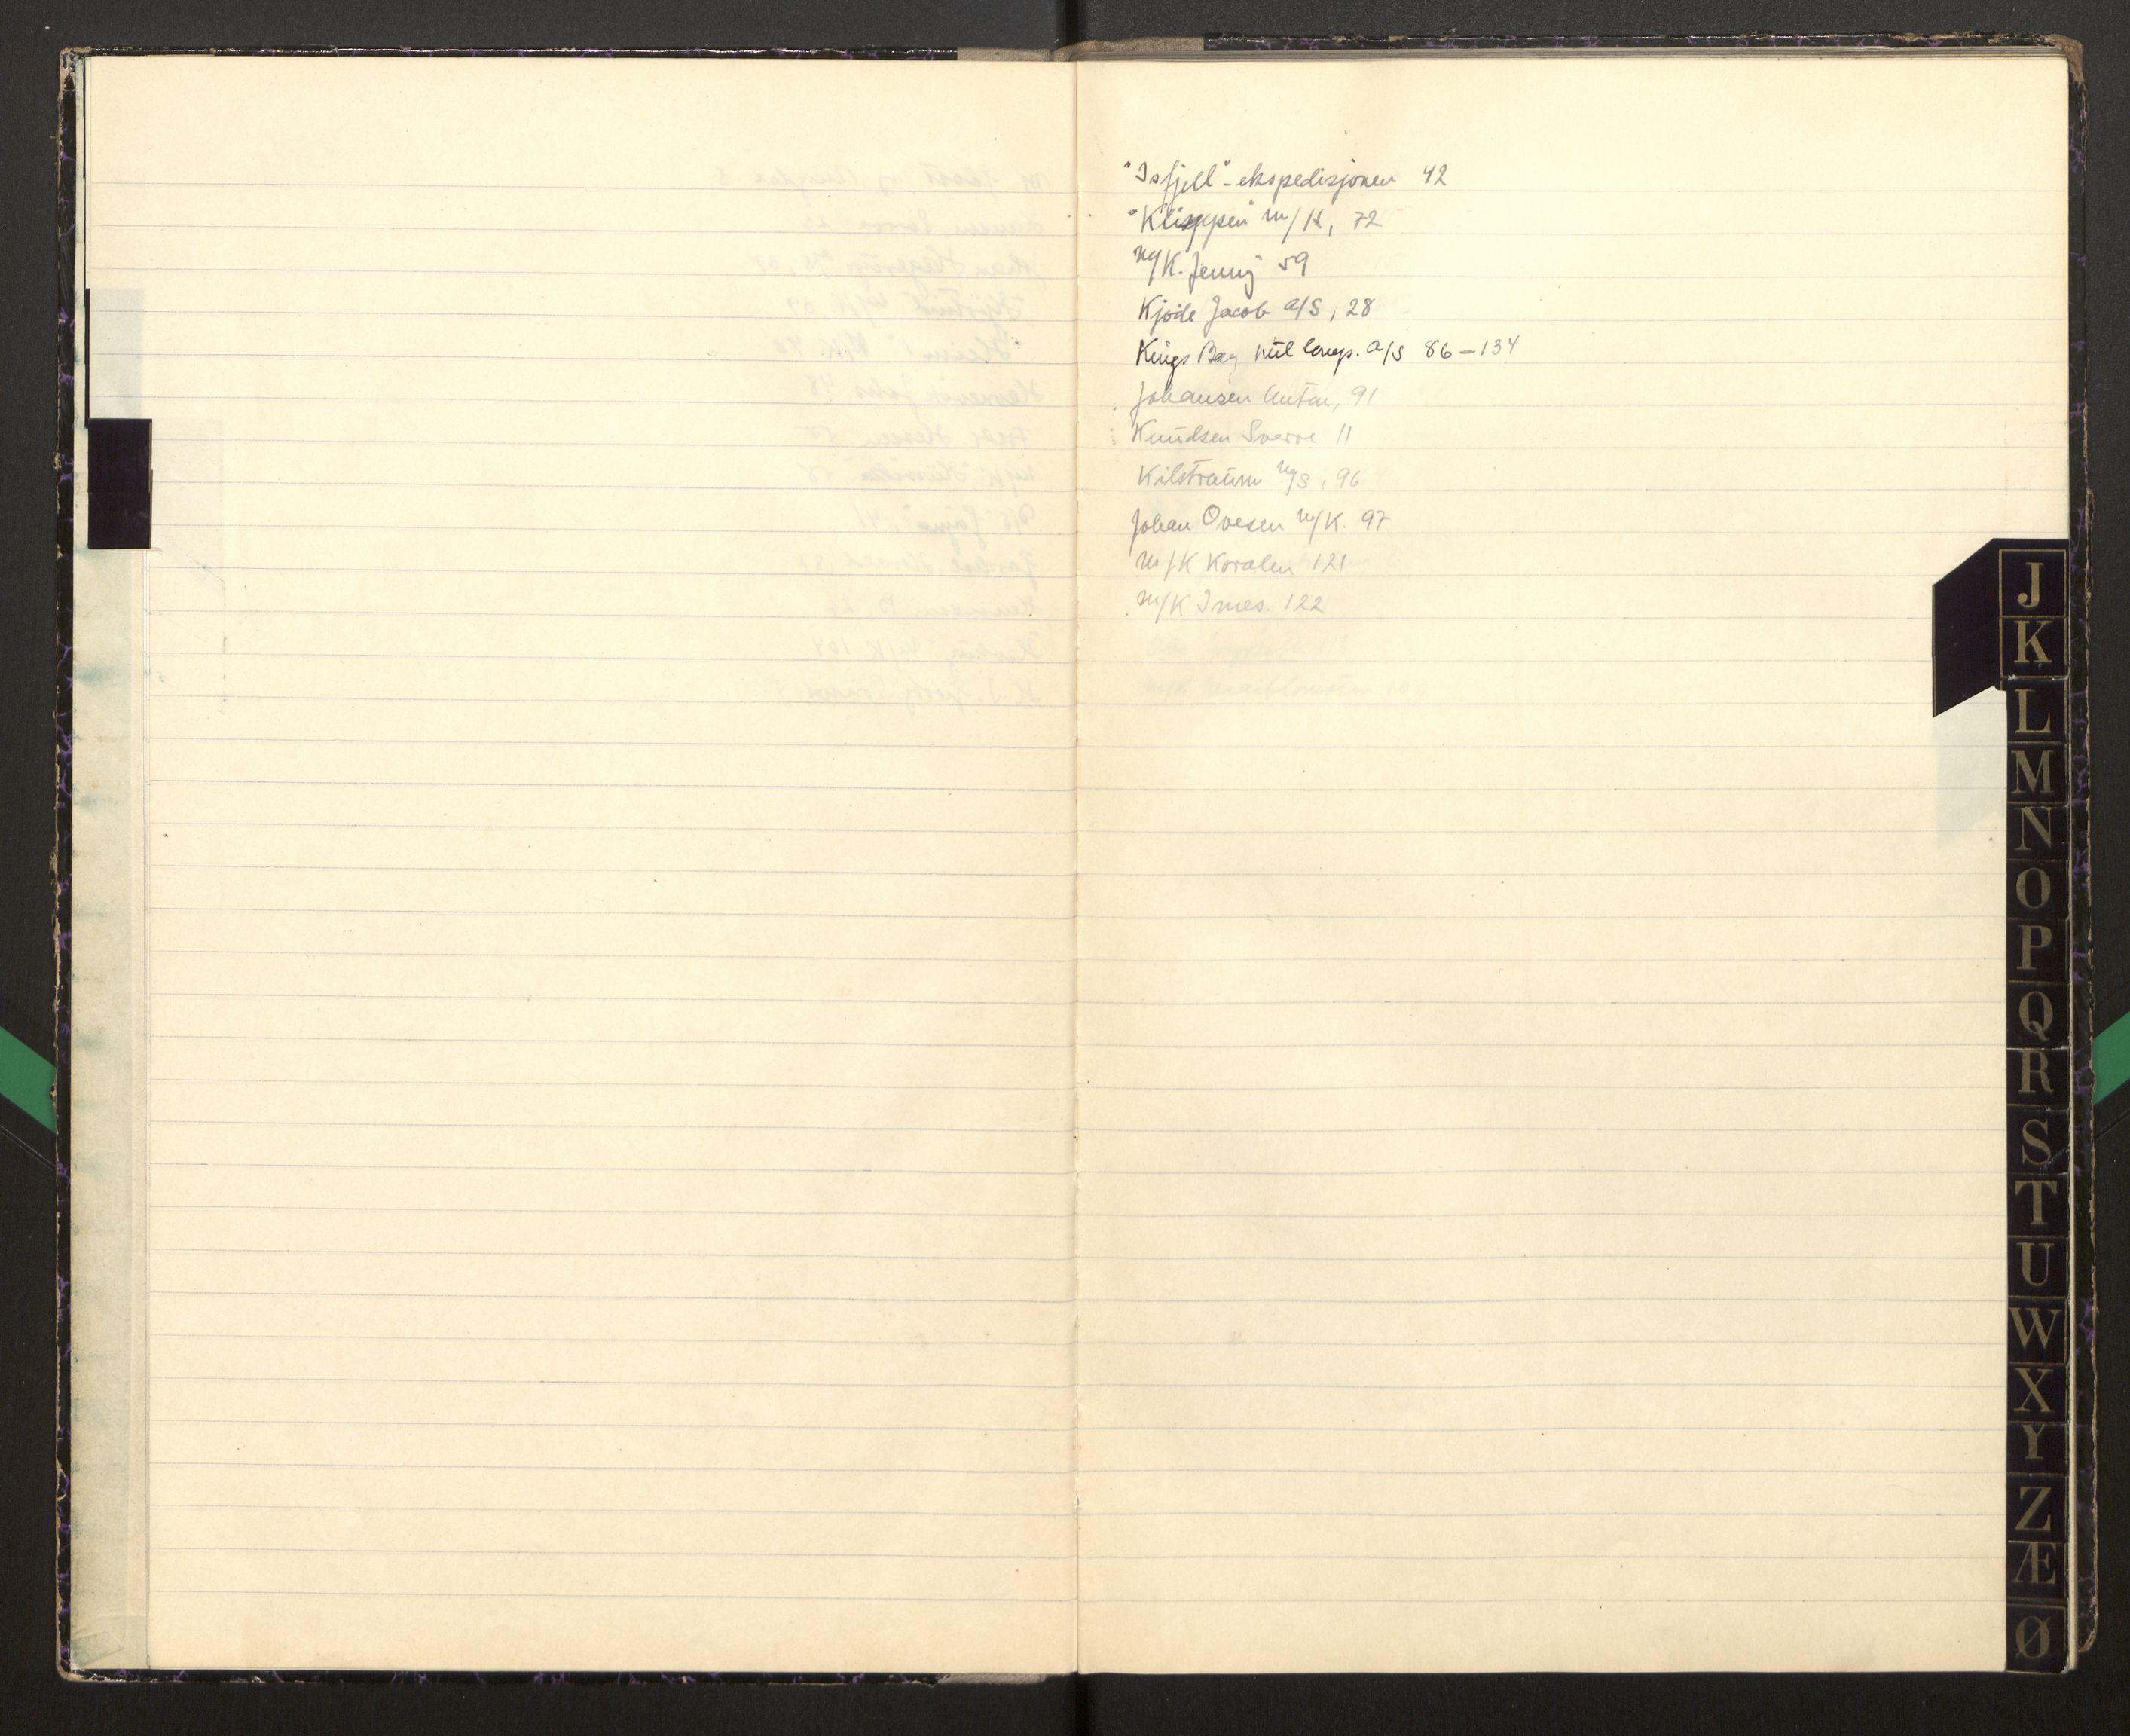 "Isfjell"-ekspedisjonen 42
"Klippen" m/K, 72
m/K. Jenny 59
Kjöde Jacob a/S, 28
Kings Bay kul comp. a/s 86-134
Johansen Anton, 91
Knudsen Sverre 11
Kilstraum m/s, 96
Johan Ovesen m/K. 97
m/K Koralen 121
m/K Ines. 122
J
K
L
M
N
O
P
Q
R
S
T
U
W
X
Y
Z
Æ
Ø